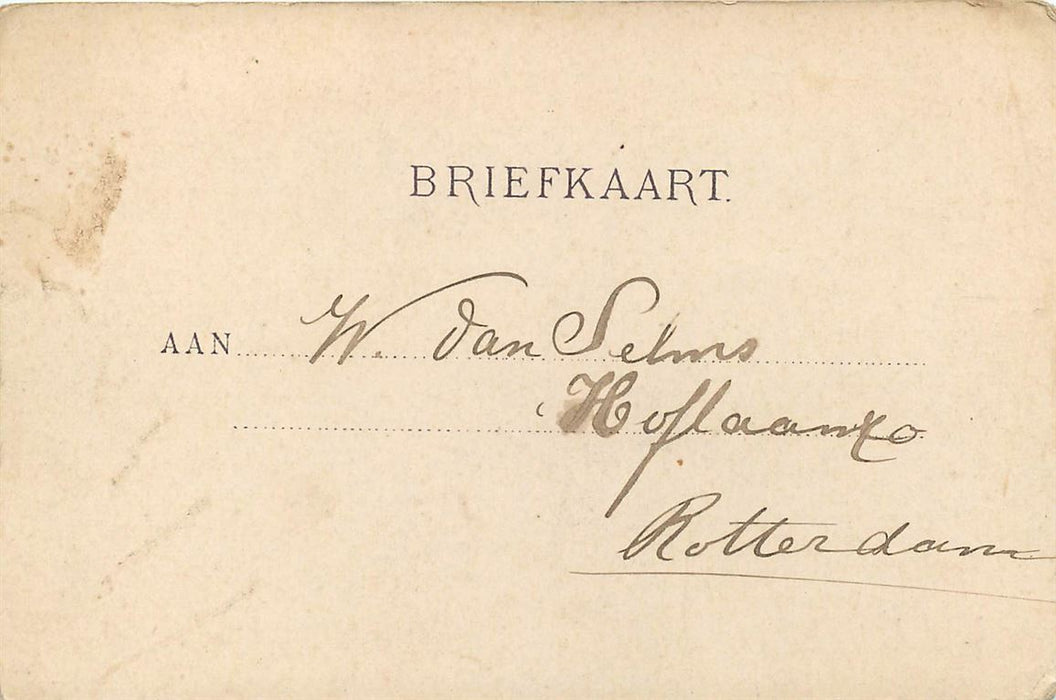 BRIEFKAART.
AAN W. van Selms
Hoflaan
Rotterdam